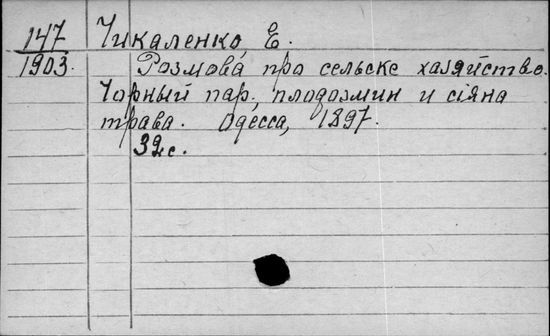 147
1903.
Чикаленко, Е.
Розмова про сельске хазяйство.
Чорный пар, плодозмин и сіяна
трава. Одесса, 1897.
32 с.